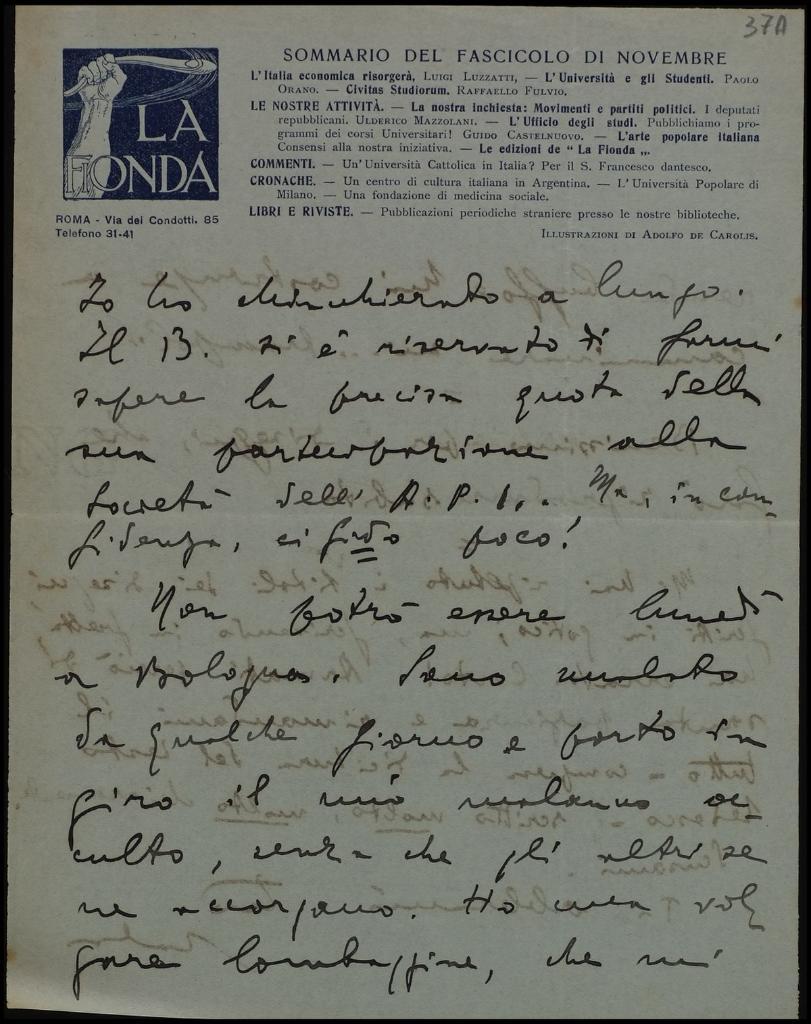 37A
LA
FIONDA
ROMA - Via dei Condotti, 85
Telefono 31-41
SOMMARIO DEL FASCICOLO DI NOVEMBRE
L'Italia economica risorgerà, LUIGI LUZZATTI, — L'Università e gli Studenti. PAOLO
ORANO. — Civitas Studiorum. RAFFAELLO FULVIO.
LE NOSTRE ATTIVITÀ. — La nostra inchiesta: Movimenti e partiti politici. I deputati
repubblicani. ULDERICO MAZZOLANI. — L'Ufficio degli studi. Pubblichiamo i pro-
grammi dei corsi Universitari! GUIDO CASTELNUOVO. — L'arte popolare italiana
Consensi alla nostra iniziativa. — Le edizioni de " La Fionda „.
COMMENTI. — Un' Università Cattolica in Italia? Per il S. Francesco dantesco.
CRONACHE. — Un centro di cultura italiana in Argentina. — L' Università Popolare di
Milano. — Una fondazione di medicina sociale.
LIBRI E RIVISTE. — Pubblicazioni periodiche straniere presso le nostre biblioteche.
ILLUSTRAZIONI DI ADOLFO DE CAROLIS.
Io ho chiacchierato a lungo.
Il B. si è riservato di farmi
sapere la precisa quota della
sua partecipazione alla
Società dell' A. P. I.. Ma, in con-
fidenza, ci fido poco!
Non potrò essere lunedì
a Bologna. Sono malato
da qualche giorno e porto in
giro il mio malanno oc-
culto, senza che gli altri se
ne accorgano. Ho una vol-
gare lombaggine, che mi